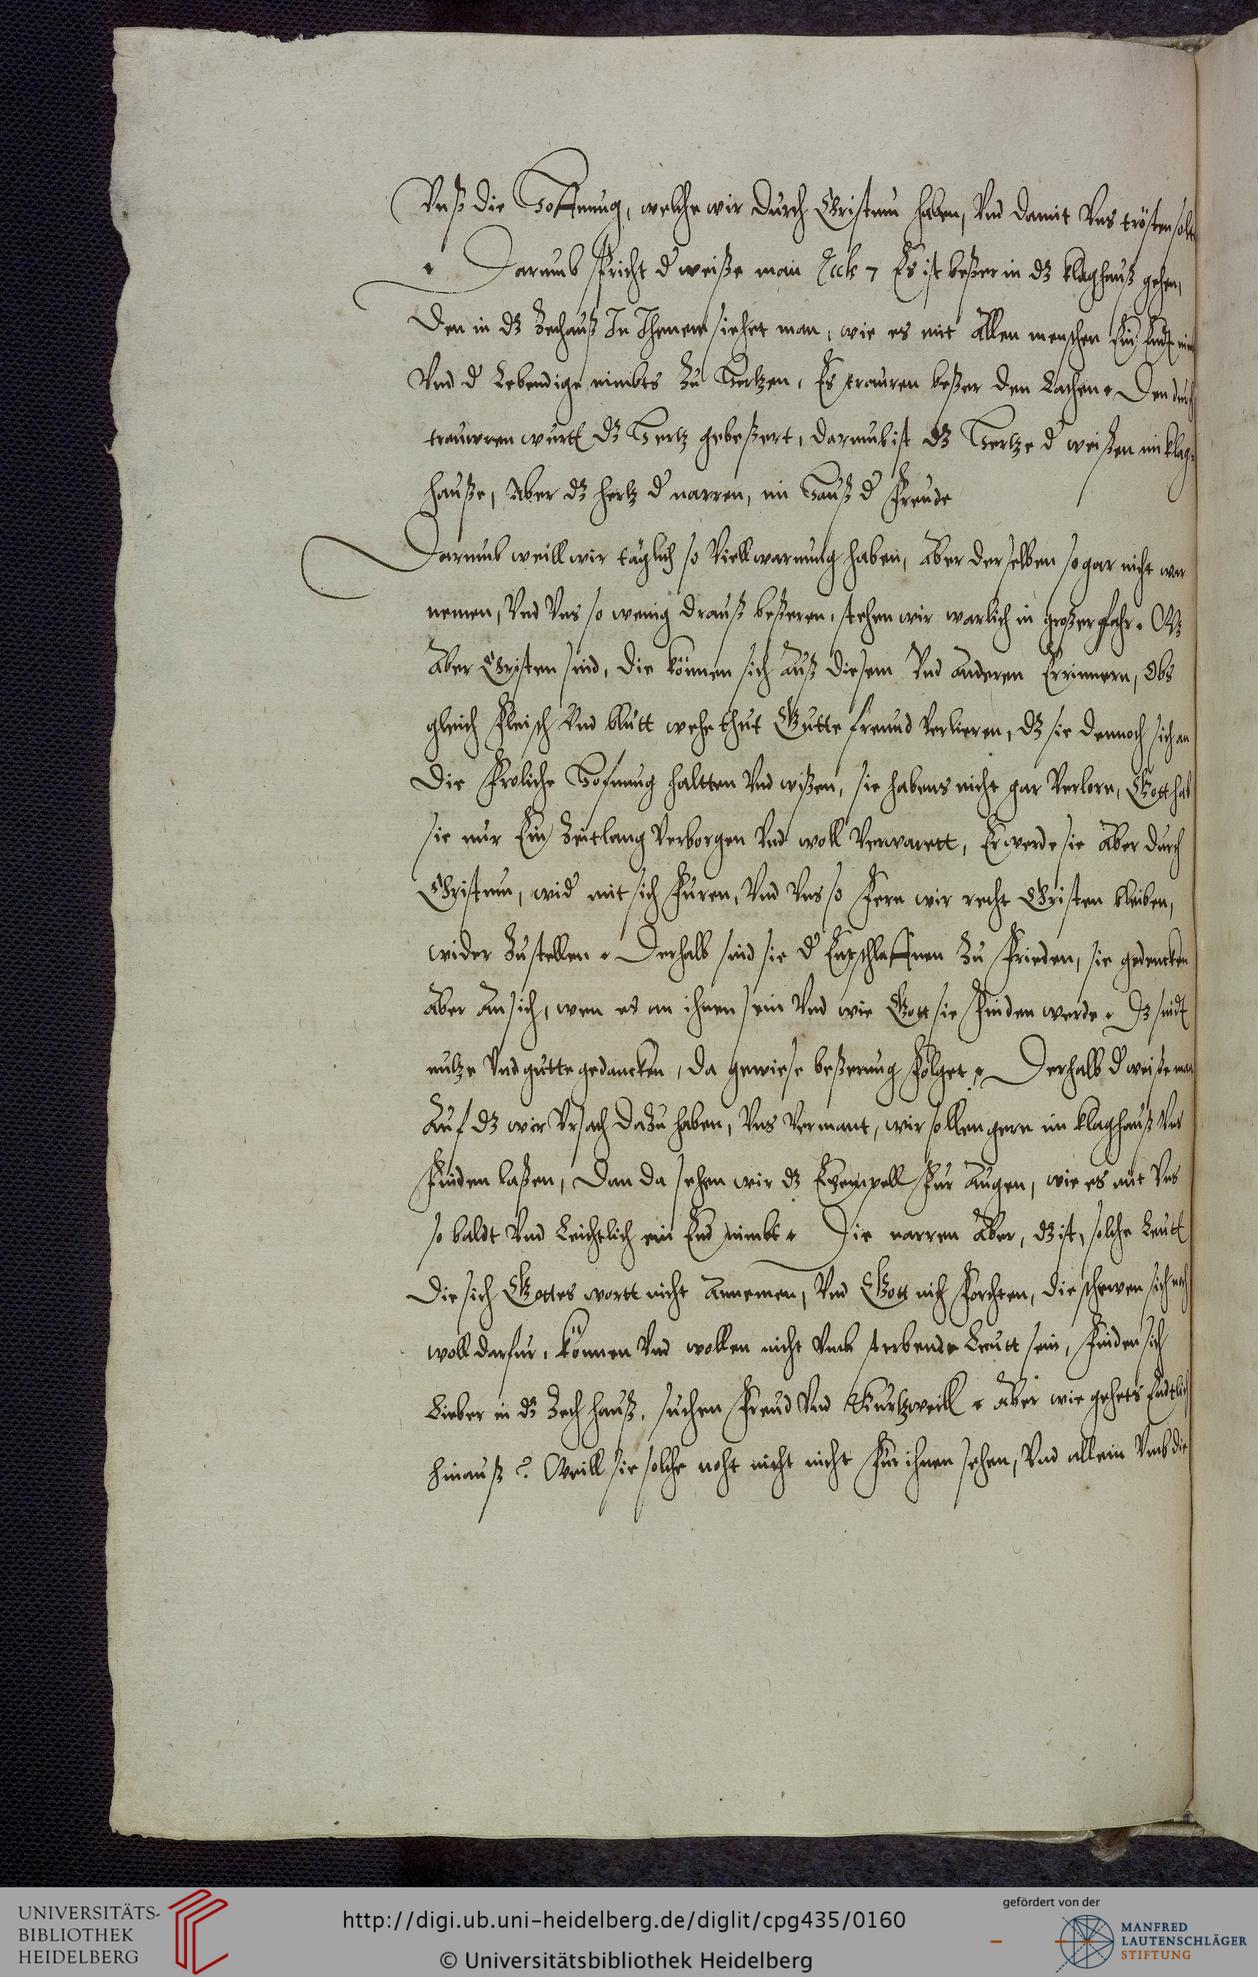 Vnß die Hoffnung, welche wir durch Christum haben, Vnd damit Vns trösten solle
Darumb spricht d' weiße man Eccl: 7 Es ist beßer in dz klaghauß gehen,
Den in dz Zechauß In Jhenem siehet man, wie es mit Allen menschen Ein Endt nim
Vnd d' Lebendige nimbts Zu Hertzen, Es trauren beßer den Lachen. Den durch
trauwren wurtt dz Hertz gebeßert, darumb ist dz Hertze d' weißen im klag=
hauße, Aber dz hertz d' narren, im Hauß d' freude
Darumb weill wir täglich so Viell warnung haben, Aber derselben so gar nicht war
nemen, Vnd Vns so wenig drauß beßeren, stehen wir warlich in großer gfahr. Wz
Aber Christen sind, die können sich Auß diesem Vnd Anderen Errinnern, Obs
gleich fleisch Vnd blutt wehe thut Gutte freund Verlieren, dz sie dennoch sich an
die froliche Hofnung haltten Vnd wißen, sie habens nicht gar Verlorn, Gott hab
sie nur Ein Zeitlang Verborgen Vnd woll Verwarett, Er werde sie Aber durch
Christum, wid' mit sich furen, Vnd Vns so fern wir recht Christen bleiben,
wider Zustellen. Derhalb sind sie d' Entschlaffnen Zu frieden, sie gedencken
Aber An sich, wen es an ihnen sein Vnd wie Gott sie finden werde. Dz sindt
nutze Vnd gutte gedancken, da gewiese beßerung folget. Derhalb d' weiße man
Auf dz wir Vrsach dazu haben, Vns Vermant, wir sollen gern im klaghauß Vns
finden laßen, Dan da sehen wir dz Exempell fur Augen, wie es mit Vns
so baldt Vnd Leichtlich ein End nimbt. Die narren Aber, dz ist, solche Leutt
die sich Gottes wortt nicht Annemen, Vnd Gott nich forchten, die schewen sich noch
woll darfur, können Vnd wollen nicht Vmb sterbende Leutt sein, finden sich
Lieber in dz Zech hauß, suchen freud Vnd Kurtzweill. Aber wie gehets Endtlich
hinauß? Weill sie solche noht nicht nicht fur ihnen sehen, Vnd allein Vmb die
UNIVERSITÄTS-
BIBLIOTHEK
HEIDELBERG
http://digi.ub.uni-heidelberg.de/diglit/cpg435/0160
© Universitätsbibliothek Heidelberg
gefördert von der
MANFRED
LAUTENSCHLÄGER
STIFTUNG